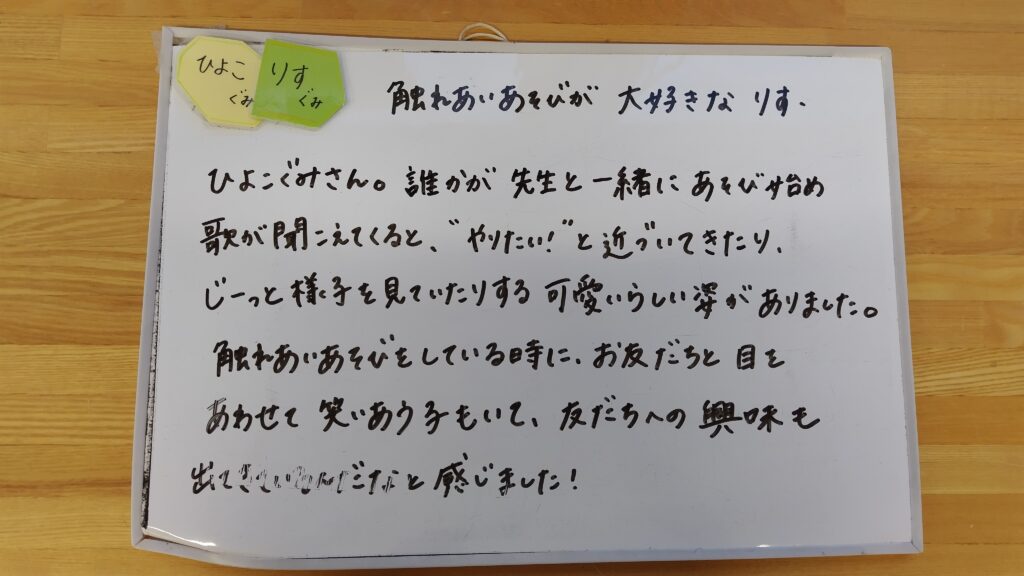 ひよこ
ぐみ
りす
ぐみ
触れあいあそびが 大好きな りす・
ひよこぐみさん。誰かが 先生と一緒に あそび始め
歌が聞こえてくると、"やりたい!"と近づいてきたり、
じーっと様子を見ていたりする 可愛いらしい姿がありました。
触れあいあそびをしている時に、お友だちと 目を
あわせて 笑いあう子もいて、友だちへの興味も
出てきているんだなと感じました!